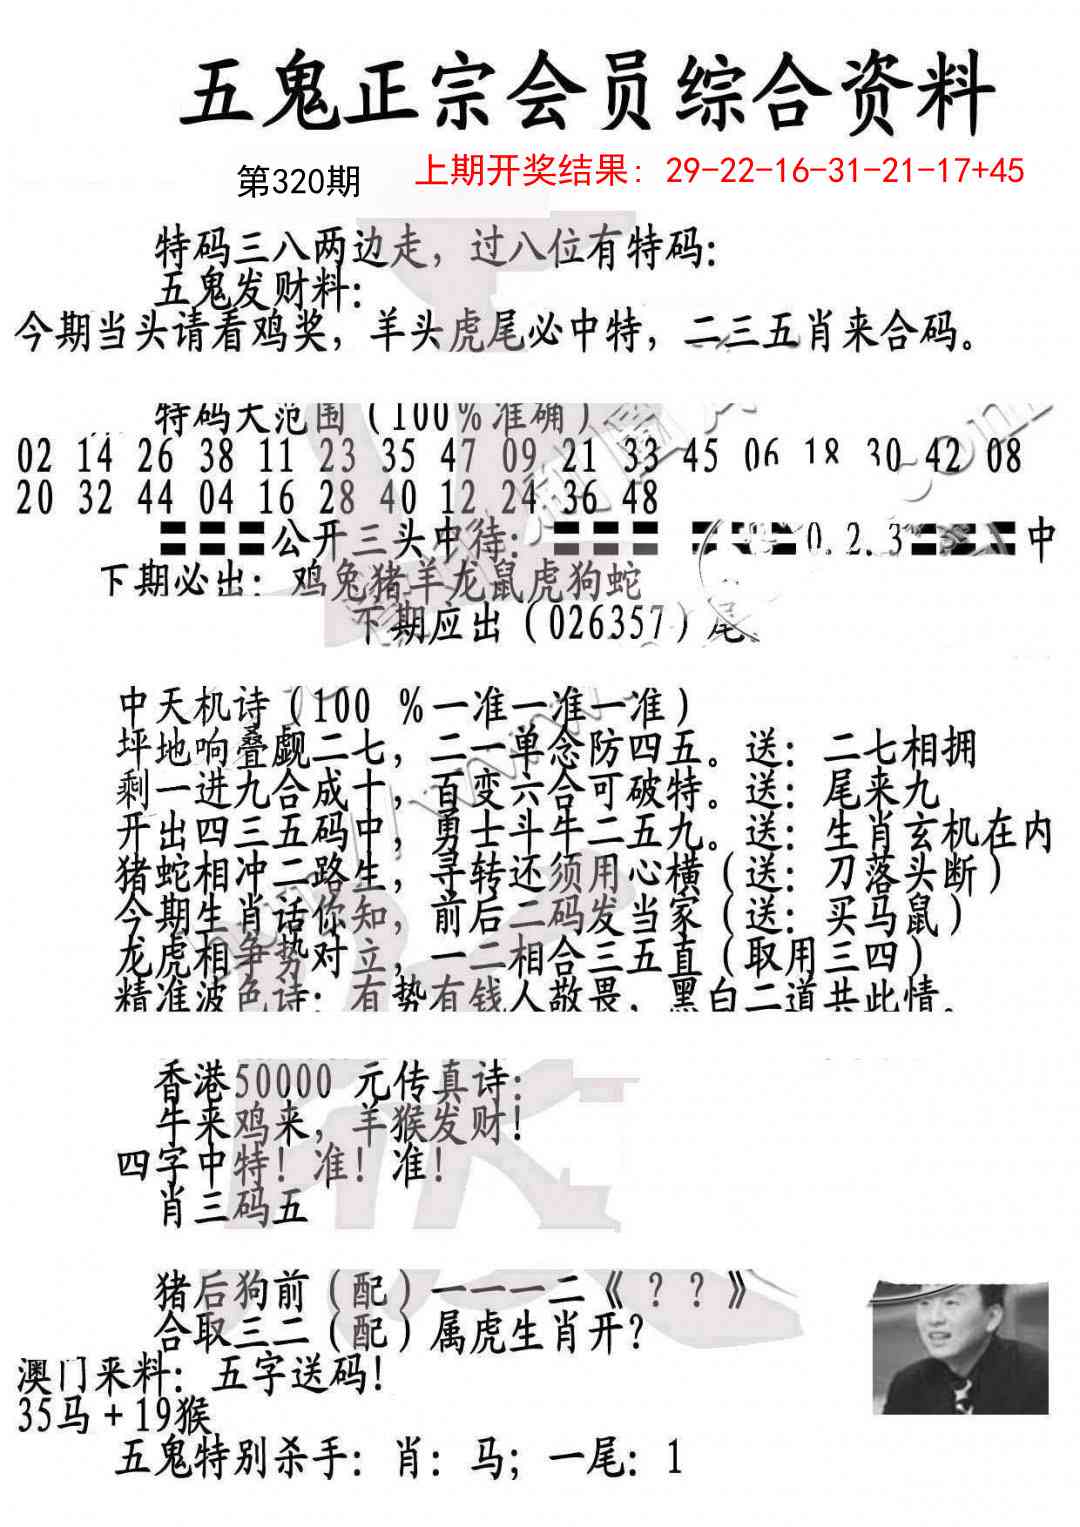 五鬼正宗会员综合资料
第320期
上期开奖结果：29-22-16-31-21-17+45
特码三八两边走，过八位有特码：
五鬼发财料：
今期当头请看鸡奖，羊头虎尾必中特，二三五肖来合码。
特码大范围（100％准确）
02 14 26 38 11 23 35 47 09 21 33 45 06 18 30 42 08
20 32 44 04 16 28 40 12 24 36 48
公开三头中待：0.2.3中
下期必出：鸡兔猪羊龙鼠虎狗蛇
下期应出（026357）尾
中天机诗（100 ％一准一准一准）
坪地响叠觑二七，二一单念防四五。送：二七相拥
剩一进九合成十，百变六合可破特。送：尾来九
开出四三五码中，勇士斗牛二五九。送：生肖玄机在内
猪蛇相冲二路生，寻转还须用心横（送：刀落头断）
今期生肖话你知，前后二码发当家（送：买马鼠）
龙虎相争势对立，一二相合三五直（取用三四）
精准波色诗：有势有钱人敬畏，黑白二道共此情。
香港50000 元传真诗：
牛来鸡来，羊猴发财！
四字中特！准！准！
肖三码五
猪后狗前（配）一一一二《？？》
合取三二（配）属虎生肖开？
澳门来料：五字送码！
35马＋19猴
五鬼特别杀手：肖：马；一尾：1